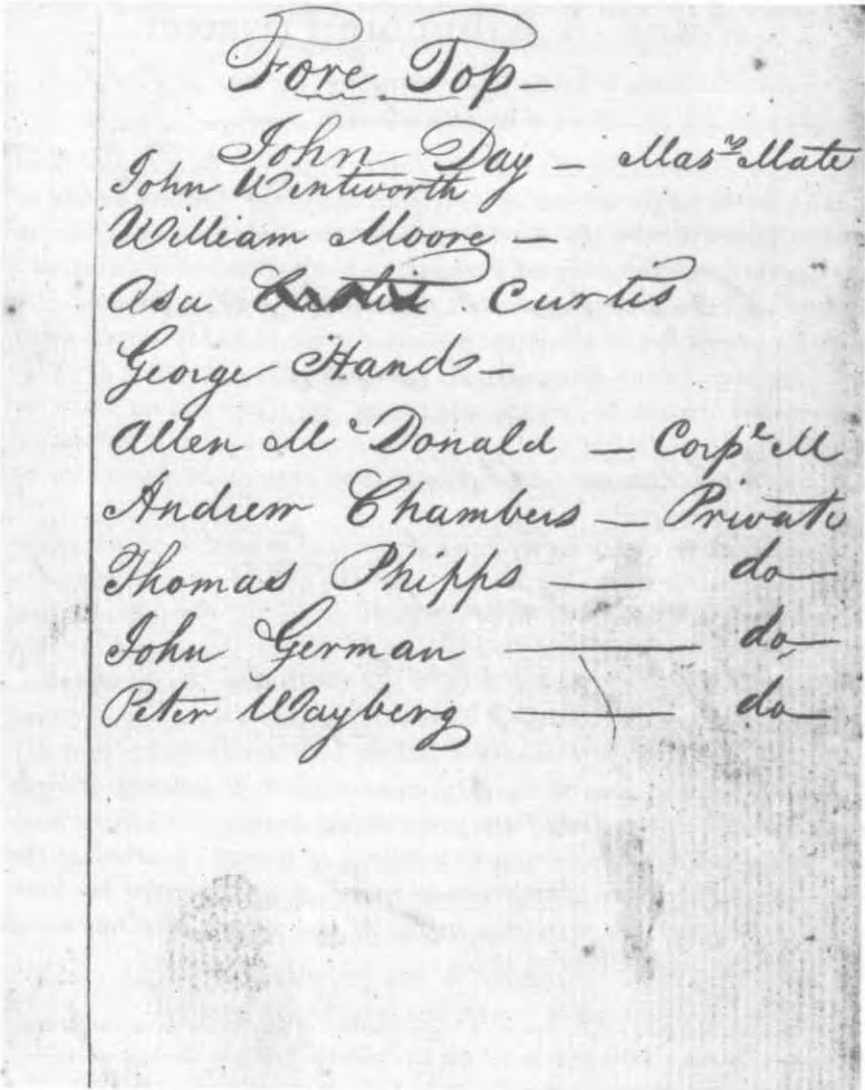 Fore Top —
John Day — Masrs Mate
John Wentworth
William Moore —
Asa Curtis
George Hand —
Allen Mc Donald — Corpl M
Andrew Chambers — Private
Thomas Phipps — do
John German — do
Peter Wayberg — do